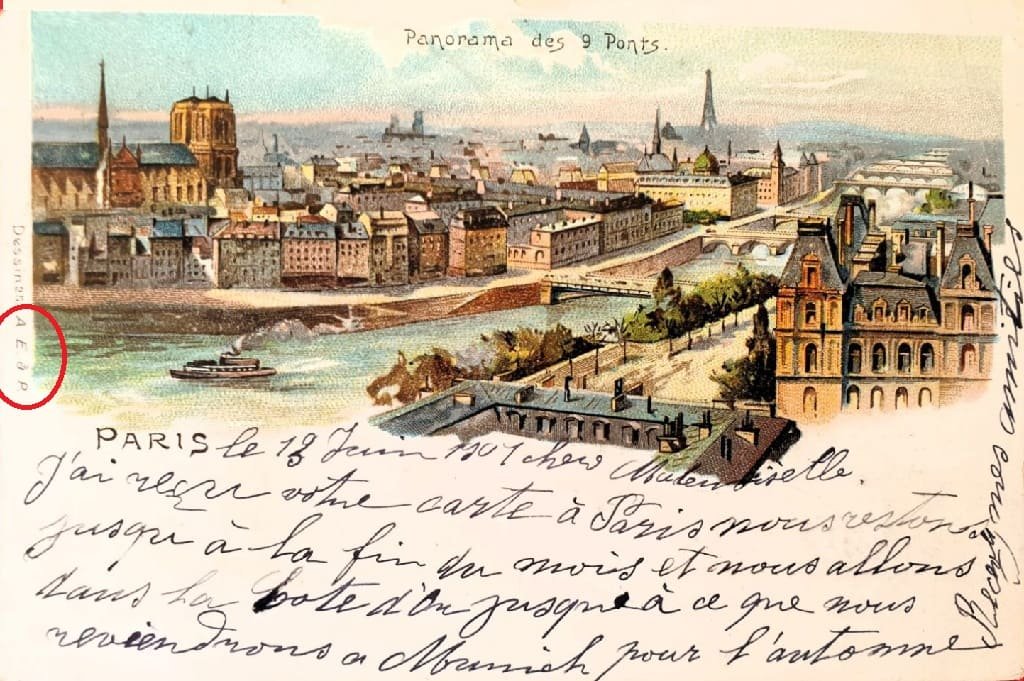 Panorama des 9 Ponts.
Dessin 25 A E à P
PARIS le 18 Juin 1901 cher Mademoiselle.
J'ai reçu votre carte à Paris nous restons
jusqu à la fin du mois et nous allons
dans la Cote d'Or jusque à ce que nous
reviendrons a Munich pour l'automne
Recevez mes amitiés